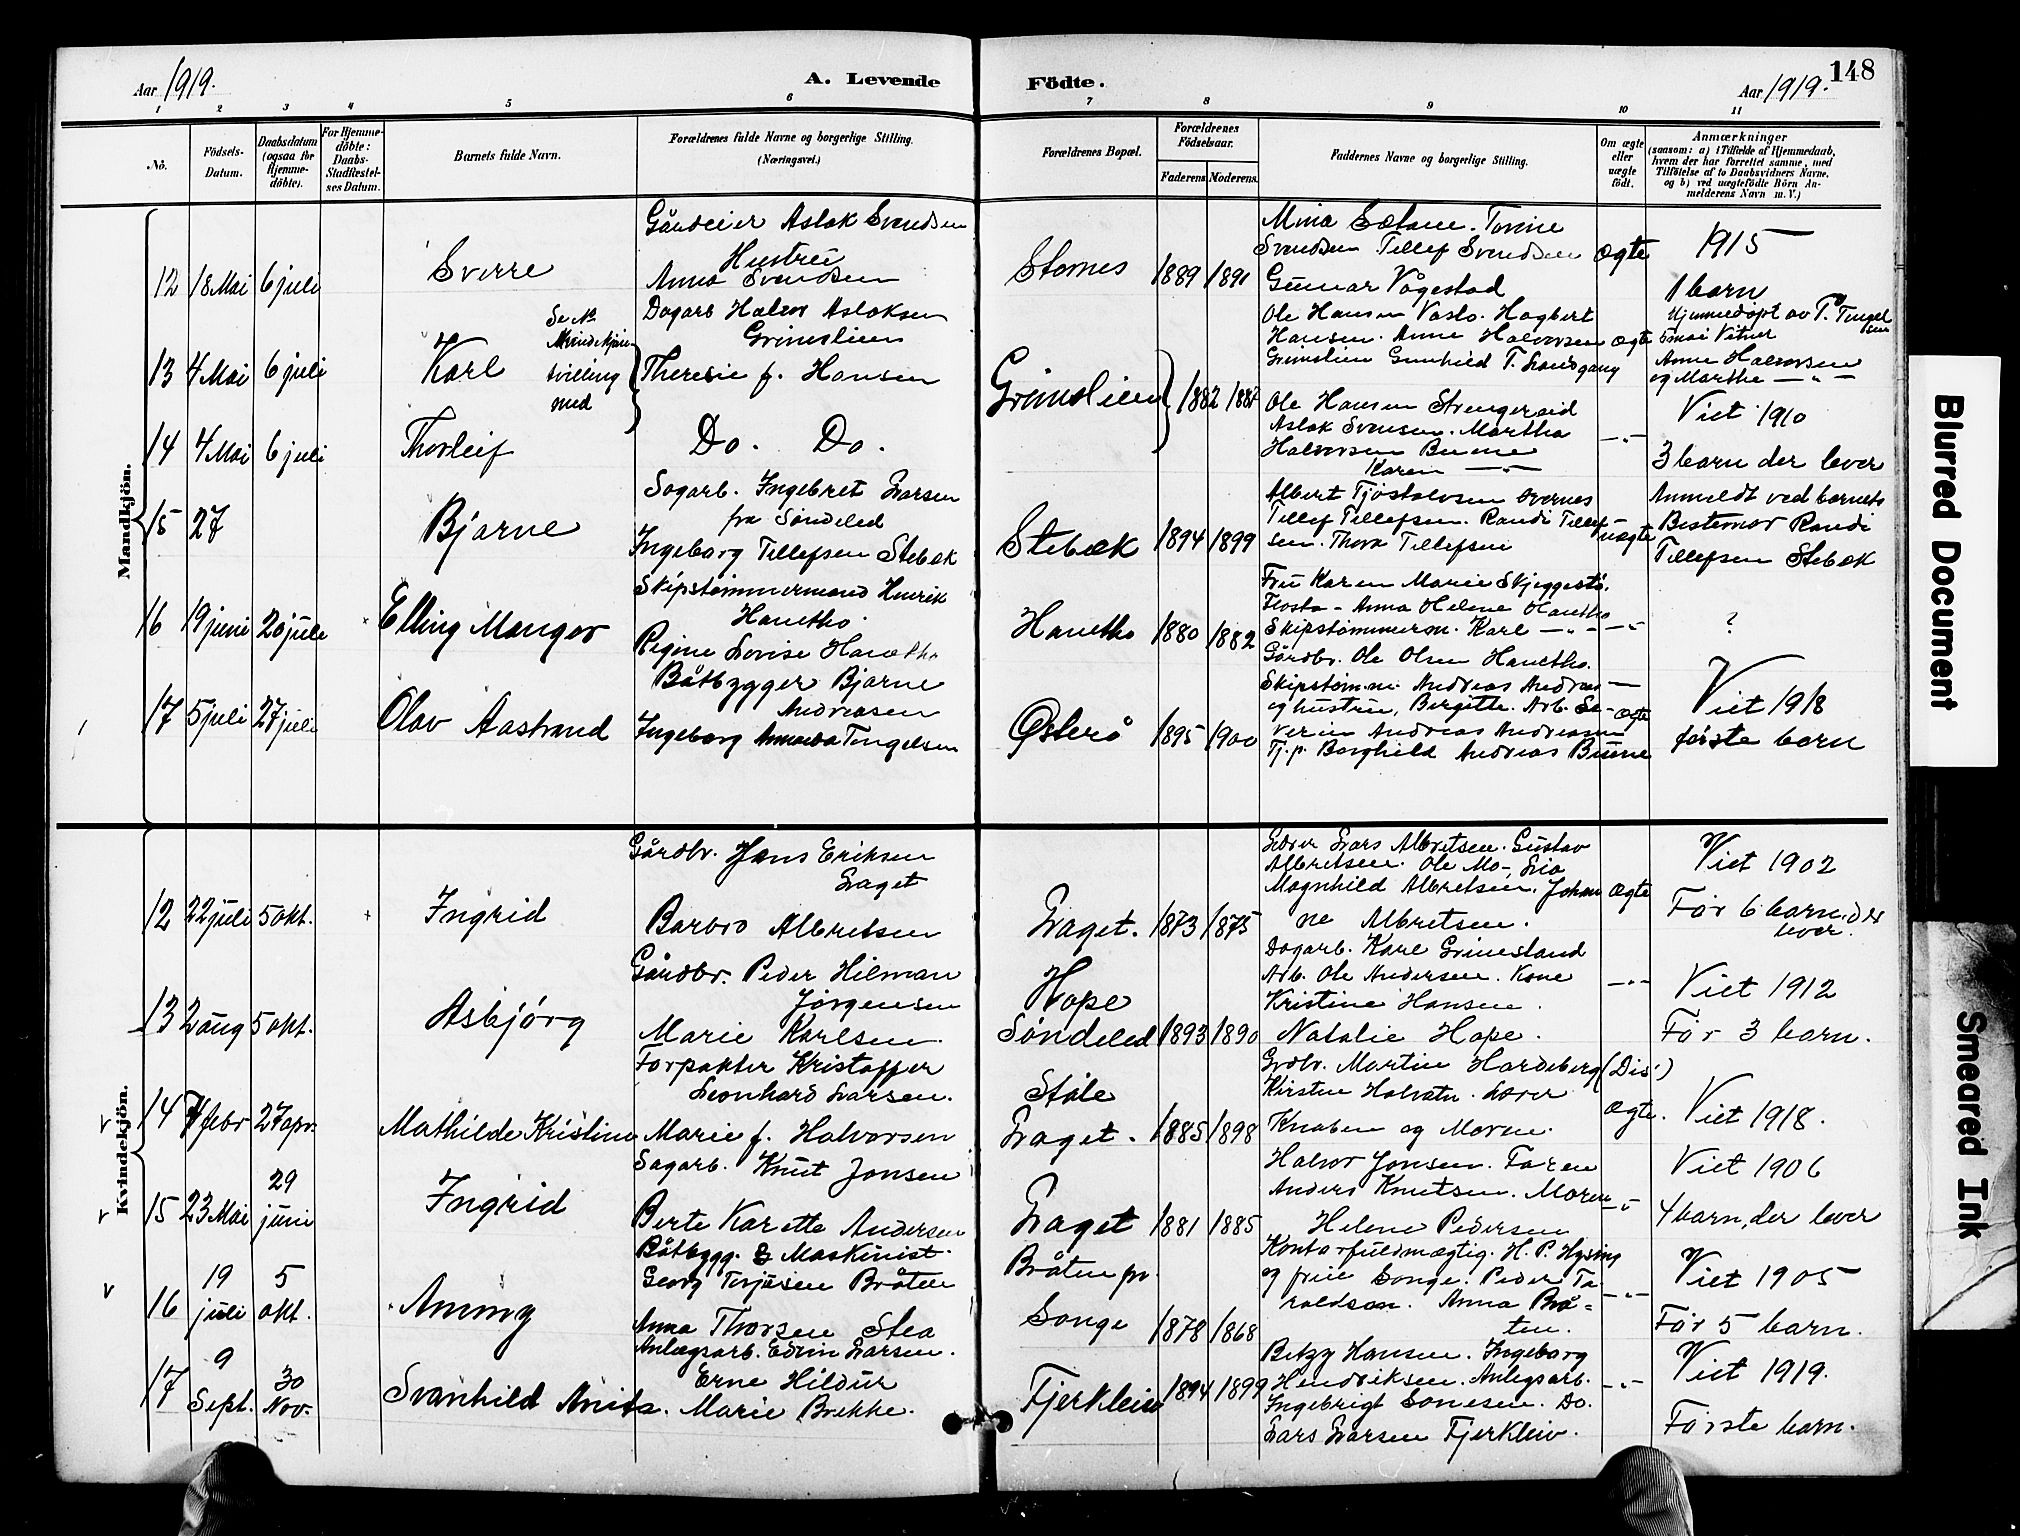 Aar 1919. A. Levende Födte. Aar 1919. 148
1 2 3 4 5 6 7 8 9 10 11
No.
Födsels-Datum.
Daabsdatum (ogsaa for Hjemme-döbte).
For Hjemme-döbte: Daabs-Stadfestel-ses Datum.
Barnets fulde Navn.
Forældrenes fulde Navne og borgerlige Stilling. (Næringsvei.)
Forældrenes Bopæl.
Forældrenes Födselsaar.
Faderens Moderens.
Faddernes Navne og borgerlige Stilling.
Om ægte eller uægte födt.
Anmærkninger
(saasom: a) i Tilfælde af Hjemmedaab, hvem der har forrettet samme, med Tilföielse af to Daabsvidners Navne, og b) ved uægtefödte Börn Anmelderens Navn m. V.)
Mandkjön.
12 18 Mai 6 juli Sverre
Gårdeier Aslak Svendsen
Hustru
Anna Svendsen
Stornes 1889 1891
Mina Sætane. Tomine
Svendsen Tellef Svendsen
Gunnar Vågestad
Ægte
1915
1 barn
13 4 Mai 6 juli Karl
Se No
tvilling
med
Dagarb Halvor Aslaksen
Grimslien
Theresie f. Hansen
Grimslien 1882
Ole Hansen Vasto. Hagbert
Hansen. Anne Halvorsen
Grimslien Gunhild T. Landgang
ægte
Hjemmedöpt av T. Tengelsen
5 mai Vitner
Anne Halvorsen
og Marthe —"—
14 4 Mai 6 juli Thorleif
Do. Do.
Ole Hansen Strengereid
Aslak Svensen. Martha
Halvorsen Buene
Karen —"—
—"—
Viet 1910
3 barn der lever
15 27 Bjarne
Sagarb. Ingebret Larsen
fra Søndeled
Ingeborg Tellefsen Stebæk
Stebæk 1894 1899
Albert Tjøstolvsen Overnes
Tellef Tellefsen. Randi Tellef-
sen. Thora Tellefsen
uægte
Anmeldt ved barnets
Bestemor Randi
Tellefsen Stebæk
16 19 juni 20 juli Elling Manger
Skipstømmermand Henrik
Hanetho.
Regine Lovise Hanetho
Hanetho 1880 1882
Fru Karen Marie Skjeggestö.
Flosta - Anna Helene Hanetho
Skipstømmerm. Karl —"—
Gårdbr. Ole Olsen Hanetho.
—"—
?
17 5 juli 27 juli Olav Aastrand
Båtbygger Bjarne
Andreasen
Ingeborg Amanda Tengelsen
Østerö 1895 1900
Skipstømm. Andreas Andreas —
og hustru, Birgitte. Arb. Se-
verin Andreas Andreasen
Tj.p. Borghild Andreas Buene
Ægte
Viet 1918
første barn
Kvindekjön.
12 22 juli 5 okt. Ingrid
Gårdbr. Jens Eriksen
Laget
Barbro Albretsen
Laget. 1873 1875
Lærer Lars Albretsen. Gustav
Albretsen. Ole Mo-Lia
Magnhild Albretsen. Johan
ne Albretsen.
Ægte
Viet 1902
Før 6 barn der
lever.
13 2 aug 5 okt. Asbjörg
Gårdbr. Peder Hilman
Jørgensen
Marie Karlsen.
Hope
Søndeled 1893 1890
Dagarb. Karl Grimesland
Arb. Ole Andersen. Kone
Kristine Hansen.
Natalie Hope.
—"—
Viet 1912
Før 3 barn.
14 7 febr 27 apr. Mathilde Kristine
Forpakter Kristoffer
Leonhard Larsen.
Marie f. Halvorsen
Ståle
Laget. 1885 1898
Grdbr. Martin Hardeberg (Dis.)
Kirsten Halvatn. Lærer
Knaben og Moren.
Ægte.
Viet 1918.
15 23 Mai 29 juni Ingrid
Sagarb. Knut Jonsen
Berte Karette Andersen
Laget 1881 1885
Halvor Jonsen. Faren
Anders Knutsen. Moren
Helene Pedersen
—"—
Viet 1906
4 barn, der lever
16 19 juli 5 okt. Ammy
Båtbygg. & Maskinist.
Georg Terjesen Bråten
Anna Thorsen Stea
Bråten pr.
Songe 1878 1868
Kontorfuldmægtig. H. P. Hysing
og frue Songe. Peder Ta-
raldsen. Anna Brå-
ten.
—"—
Viet 1905
Før 5 barn.
17 9 Sept. 30 Nov. Svanhild Anita
Anlægsarb. Edvin Larsen.
Erne Hildur
Marie Brekke.
Fjerkleiv 1894 1899
Betzy Hansen. Ingeborg
Hendriksen. Anlegsarb.
Ingebrigt Sonesen. Do.
Lars Larsen Fjerkleiv.
—"—
Viet 1919.
Første barn.
Blurred Document
Smeared Ink